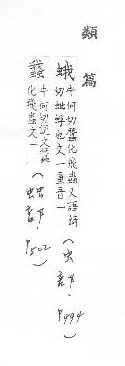 類篇
蛾 牛何切蠶化飛蟲又語綺
切蚍蜉也文一重音一 (虫部. P494)
䖸 牛何切說文蠶
化飛蟲文一 (䖵部. P502)